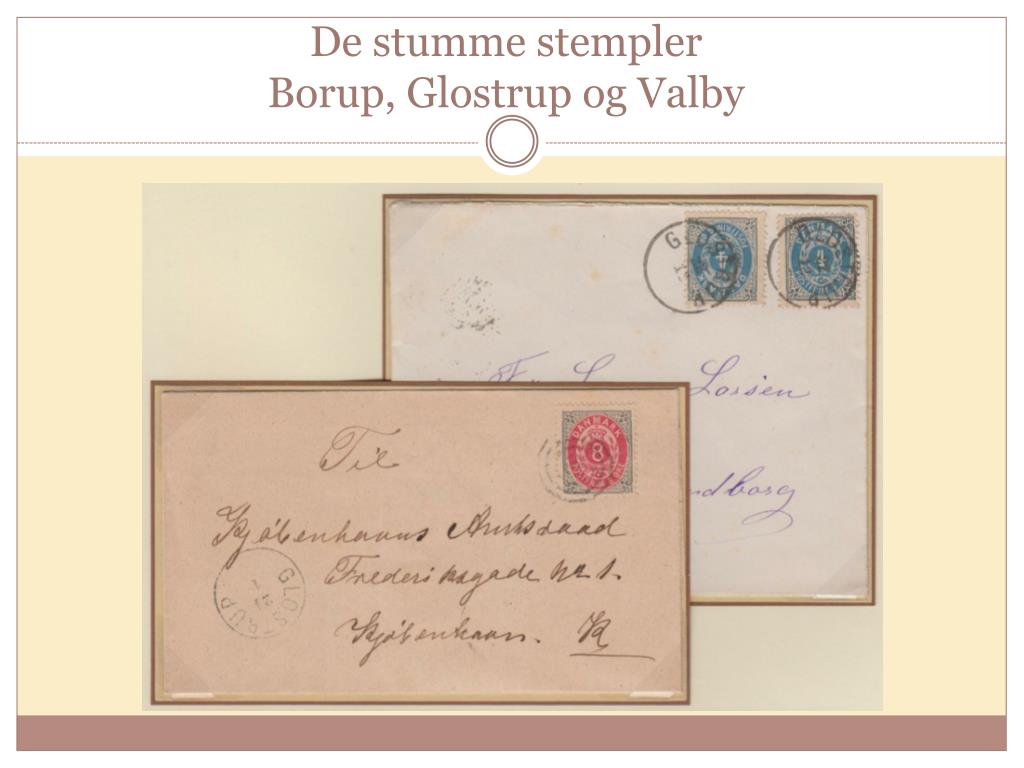 De stumme stempler
Borup, Glostrup og Valby
GLOS
GLOS
4
4
Larsen
ndborg
DANMARK
8
Til
Kjøbenhavns Amtsraad
Frederiksgade No 1.
Kjøbenhavn. K
GLOSTRUP